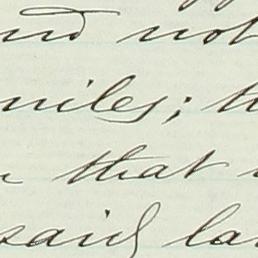 and not
miles; th
that
said la